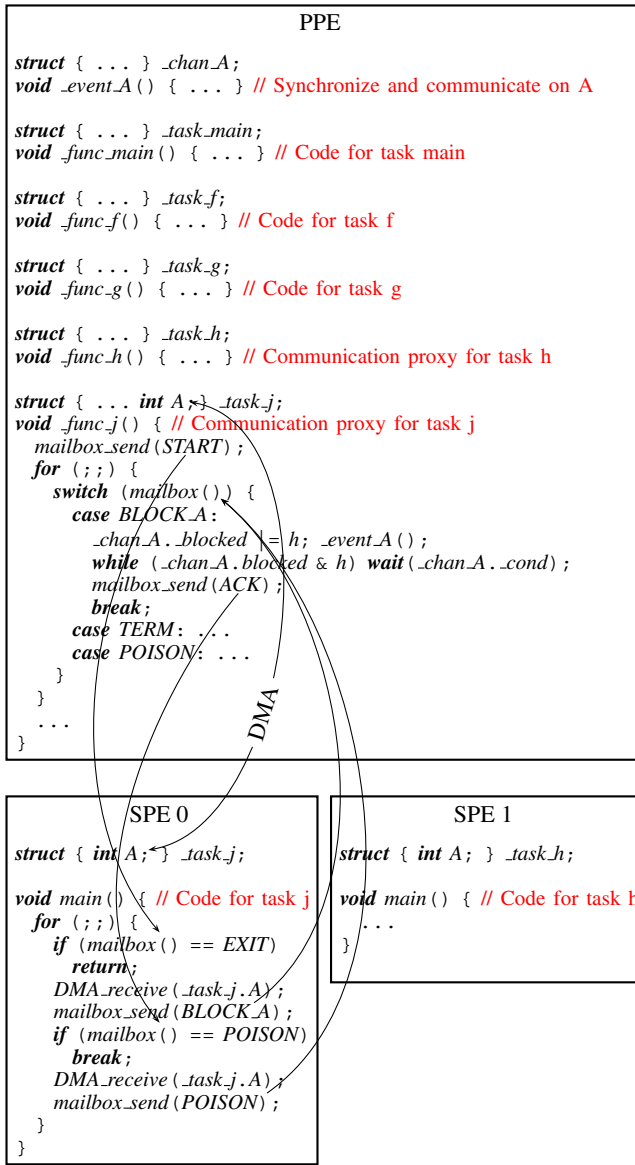 PPE
struct { ... } _chan_A;
void _event_A() { ... } // Synchronize and communicate on A
struct { ... } _task_main;
void _func_main() { ... } // Code for task main
struct { ... } _task_f;
void _func_f() { ... } // Code for task f
struct { ... } _task_g;
void _func_g() { ... } // Code for task g
struct { ... } _task_h;
void _func_h() { ... } // Communication proxy for task h
struct { ... int A; } _task_j;
void _func_j() { // Communication proxy for task j
mailbox_send(START);
for (;;) {
switch (mailbox()) {
case BLOCK_A:
_chan_A._blocked |= h; _event_A();
while (_chan_A.blocked & h) wait(_chan_A._cond);
mailbox_send(ACK);
break;
case TERM: ...
case POISON: ...
}
}
...
}
DMA
SPE 0
struct { int A; } _task_j;
void main() { // Code for task j
for (;;) {
if (mailbox() == EXIT)
return;
DMA_receive(_task_j.A);
mailbox_send(BLOCK_A);
if (mailbox() == POISON)
break;
DMA_receive(_task_j.A);
mailbox_send(POISON);
}
}
SPE 1
struct { int A; } _task_h;
void main() { // Code for task h
...
}